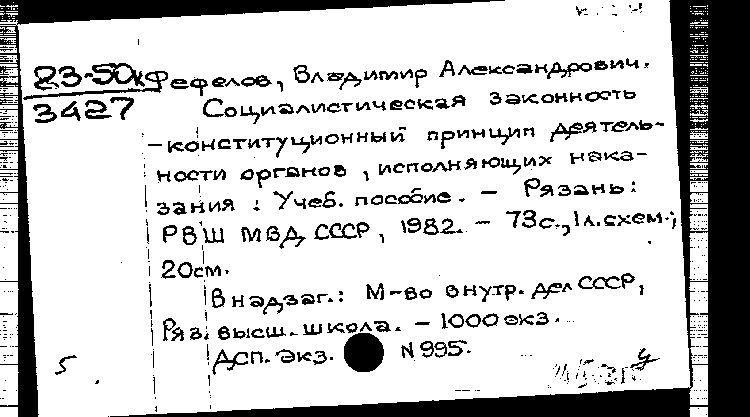 23-50к Фефелов, Владимир Александрович.
3427 Социалистическая законность
-конституционный принцип деятель-
ности органов, исполняющих нака-
зания : Учеб. пособие. - Рязань:
РВШ МВД СССР, 1982. - 73с., 1л.схем.;
20см.
В надзаг.: М-во внутр. дел СССР,
Ряз. высш. школа. - 1000 экз.
ДСП. Экз. N 995.
5